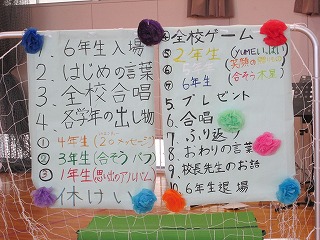 1. 6年生入場
2. はじめの言葉
3. 全校合唱
4. 各学年の出し物
① 4年生(20メッセージ)
② 3年生(合そう パフ)
③ 1年生(思い出のアルバム)
休けい
④ 全校ゲーム
⑤ 2年生 (YUMEいっぱい)
⑥
⑦ 6年生 (合そう 木星)
5. プレゼント
6. 合唱
7. ふり返り
8. おわりの言葉
9. 校長先生のお話
10. 6年生退場